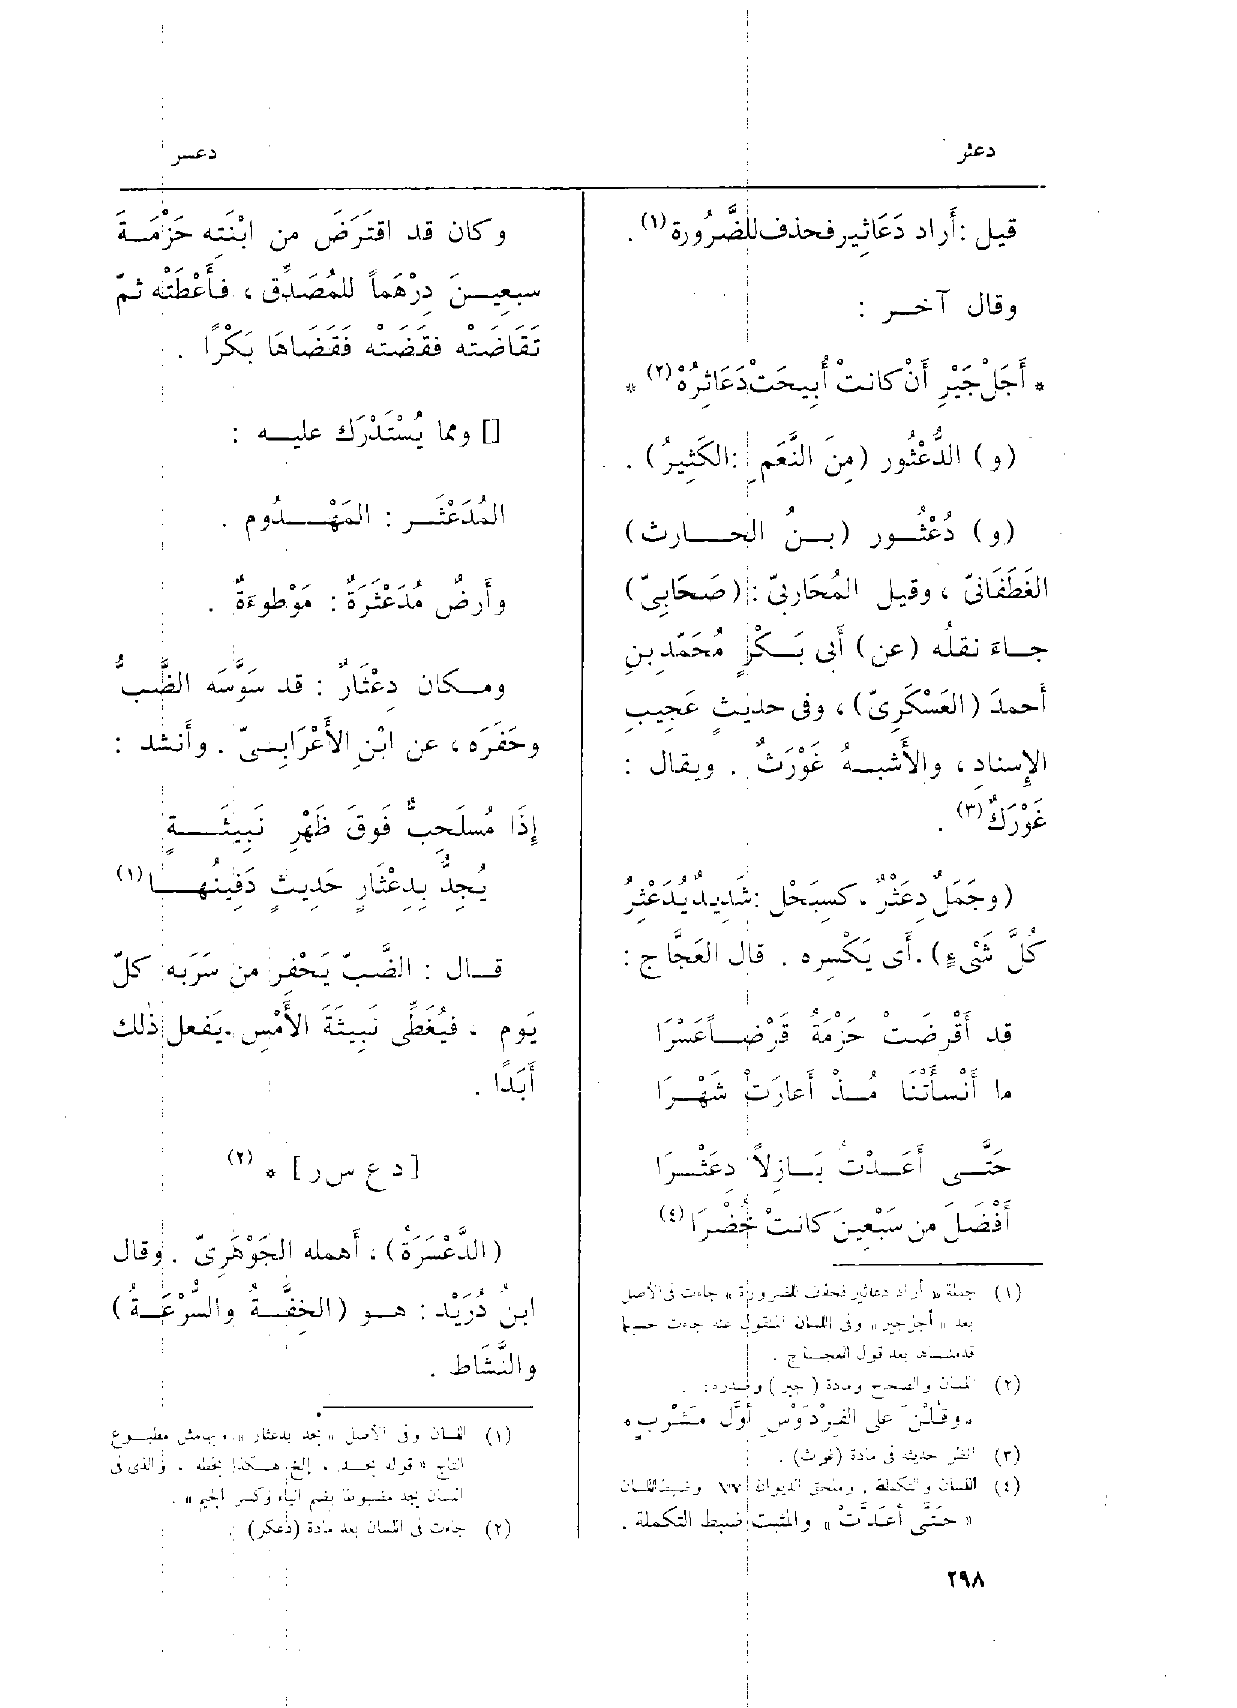 دعثر
دعسر
قيل : أَراد دَعَاثِير فحذف للضَّرُورة (١) .
وقال آخـر :
* أَجَلْ جَيْرِ أَنْ كانتْ أُبِيحَتْ دَعَاثِرُهْ (٢) *
(و) الدُّعْثُور (مِنَ النَّعَمِ : الكَثِيرُ) .
(و) دُعْثُـور (بـنُ الحـارث)
الغَطَفَانىّ ، وقيل المُحَاربىّ : (صَحَابِىّ)
جـاءَ نقلُه (عن) أَبى بَـكْرٍ مُحَمّد بنِ
أَحمدَ (العَسْكَرِىّ) ، وفى حديثٍ عَجِيبِ
الإِسناد ، والأَشبـهُ غَوْرَثٌ . ويقال :
غَوْرَكٌ (٣) .
(وجَمَلٌ دِعَثْرٌ ، كسِبَحْلٍ : شَدِيدٌ يُدَعْثِرُ
كُلَّ شَىْءٍ) . أَى يَكْسِره . قال العَجّاج :
قد أَقْرضَتْ حَزْمَةُ قَرْضـاً عَسْرَا
ما أَنْسأَتْنَا مُـذْ أَعارَتْ شَهْـرَا
حَتَّـى أَعَـدَّتْ بَـازِلاً دِعَثْـرَا
أَفْضَلَ من سَبْعِينَ كانتْ خُضْرَا (٤)
(١) جملة « أراد دعاثير فحذف للضرورة » جاءت فى الأصل
بعد « أجل جير » وفى اللسان المنقول عنه جاءت حسبما
قدمنـاه بعد قول العجـاج .
(٢) اللسان والصحاح ومادة (جير) وصدره :
« وقُلْنَ على الفِرْدَوْسِ أَوَّلُ مَشْرَبٍ »
(٣) انظر حديثه فى مادة (غورث) .
(٤) اللسان والتكملة . وملحق الديوان ٧٧ وضبط اللسان
« حَتَّى أَعْدَدْتَ » والمثبت ضبط التكملة .
٢٩٨
وكان قد اقتَرَضَ من ابْنَتِه حَزْمَـةَ
سبعِيـنَ دِرْهَماً للمُصَدِّق ، فأَعْطَتْه ثمّ
تَقَاضَتْه فقَضَتْه فَقَضَاهَا بَكْرًا .
[] ومما يُسْتَدْرَك عليـه :
المُدَعْثَـر : المَهْـدُوم .
وأَرضٌ مُدَعْثَرَةٌ : مَوْطوءَةٌ .
ومـكان دِعْثَارٌ : قد سَوَّسَه الضَّبُّ
وحَفَرَه ، عن ابْنِ الأَعْرَابـىّ . وأَنشد :
إِذَا مُسْلَحِبٌّ فَوقَ ظَهْرِ نَبِيثَـةٍ
يُجِدُّ بِدِعْثَارٍ حَدِيثٍ دَفِينُهـا (١)
قـال : الضَّبّ يَحْفِر من سَرَبِه كلّ
يَوم ، فيُغَطِّى نَبِيثَةَ الأَمْسِ . يَفعل ذٰلك
أَبَدًا .
[د ع س ر] * (٢)
(الدَّعْسَرَةُ) ، أَهمله الجَوْهَرِىّ . وقال
ابنُ دُرَيْد : هـو (الخِفَّـةُ والسُّرْعَـةُ)
والنَّشَاط .
(١) اللسان وفى الأصل « يجد بدعثار » ، وبهامش مطبـوع
التاج « قوله يجـد ، إلخ هـكذا بخطه . والذى فى
اللسان يجد مضبوطا بضم الياء وكسر الجيم » .
(٢) جاءت فى اللسان بعد مادة (دعكر)